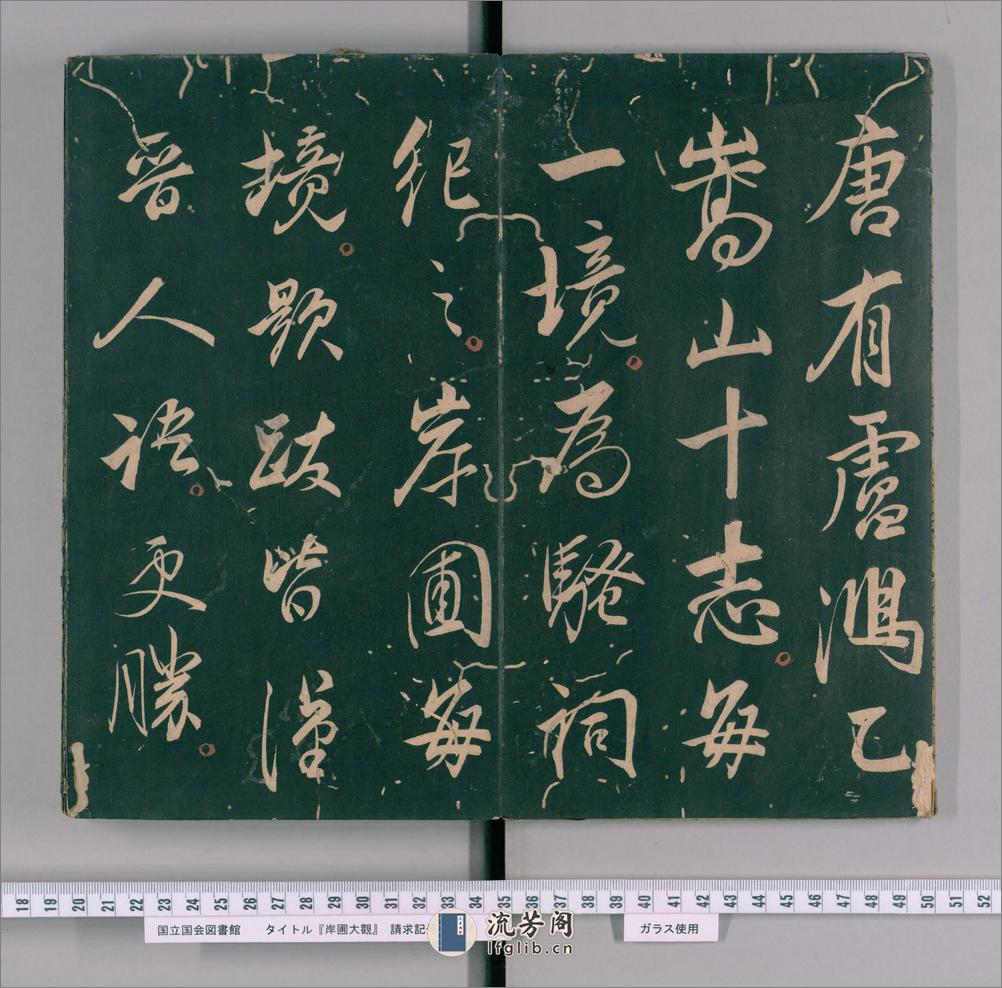 唐有盧鴻乙
嵩山十志每
一境為騷詞
紀之岸圃每
境題跋皆漢
晉人語更勝
18 19 20 21 22 23 24 25 26 27 28 29 30 31 32 33 34 35 36 37 38 39 40 41 42 43 44 45 46 47 48 49 50 51 52
国立国会図書館 タイトル『岸圃大觀』 請求記
ガラス使用
流芳阁
lfglib.cn